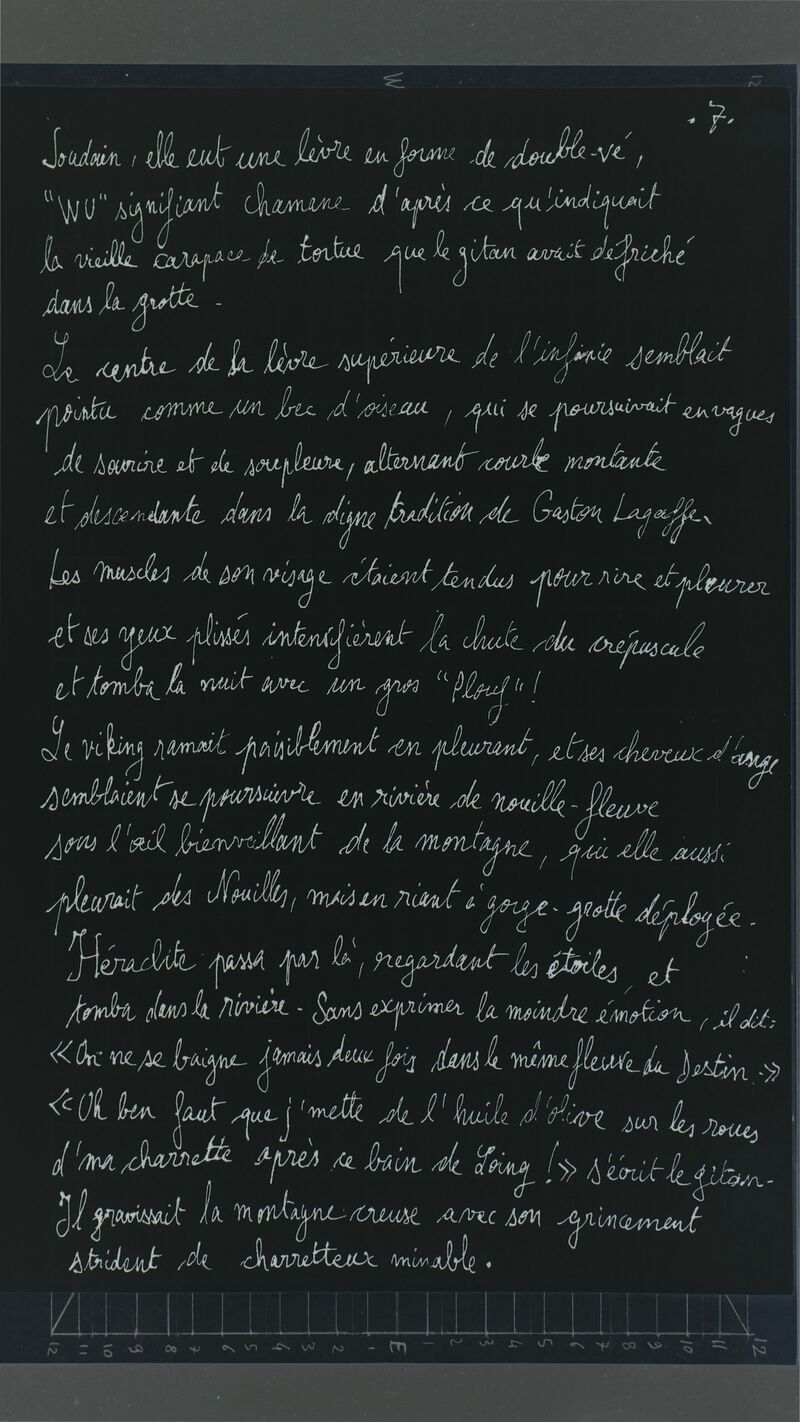 . 7.
Soudain, elle eut une lèvre en forme de double-vé,
"WU" signifiant chamane d'après ce qu'indiquait
la vieille carapace de tortue que le gitan avait défriché
dans la grotte -
Le centre de la lèvre supérieure de l'infinie semblait
pointu comme un bec d'oiseau, qui se poursuivait en vagues
de sourire et de soupleure, alternant courbe montante
et descendante dans la digne tradition de Gaston Lagaffe.
Les muscles de son visage étaient tendus pour rire et pleurer
et ses yeux plissés intensifièrent la chute du crépuscule
et tomba la nuit avec un gros "Plouf"!
Le viking ramait paisiblement en pleurant, et ses cheveux d'ange
semblaient se poursuivre en rivière de nouille-fleuve
sous l'œil bienveillant de la montagne, qui elle aussi
pleurait des Nouilles, mais en riant à gorge-grotte déployée -
Héraclite passa par là, regardant les étoiles, et
tomba dans la rivière - Sans exprimer la moindre émotion, il dit:
«On ne se baigne jamais deux fois dans le même fleuve du Destin.»
«Oh ben faut que j'mette de l'huile d'olive sur les roues
d'ma charrette après ce bain de Loing!» s'écrit le gitan-
Il gravissait la montagne creuse avec son grincement
strident de charretteux minable.
W
12
12 11 10 9 8 7 6 5 4 3 2 1 E 1 2 3 4 5 6 7 8 9 10 11 12